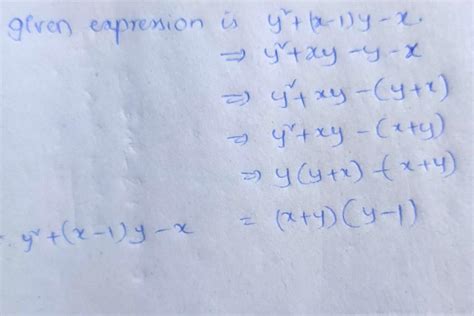 given expression is y²+(x-1)y-x.
⇒ y²+xy-y-x
⇒ y²+xy-(y+x)
⇒ y²+xy-(x+y)
⇒ y(y+x)-(x+y)
∴ y²+(x-1)y-x = (x+y)(y-1)